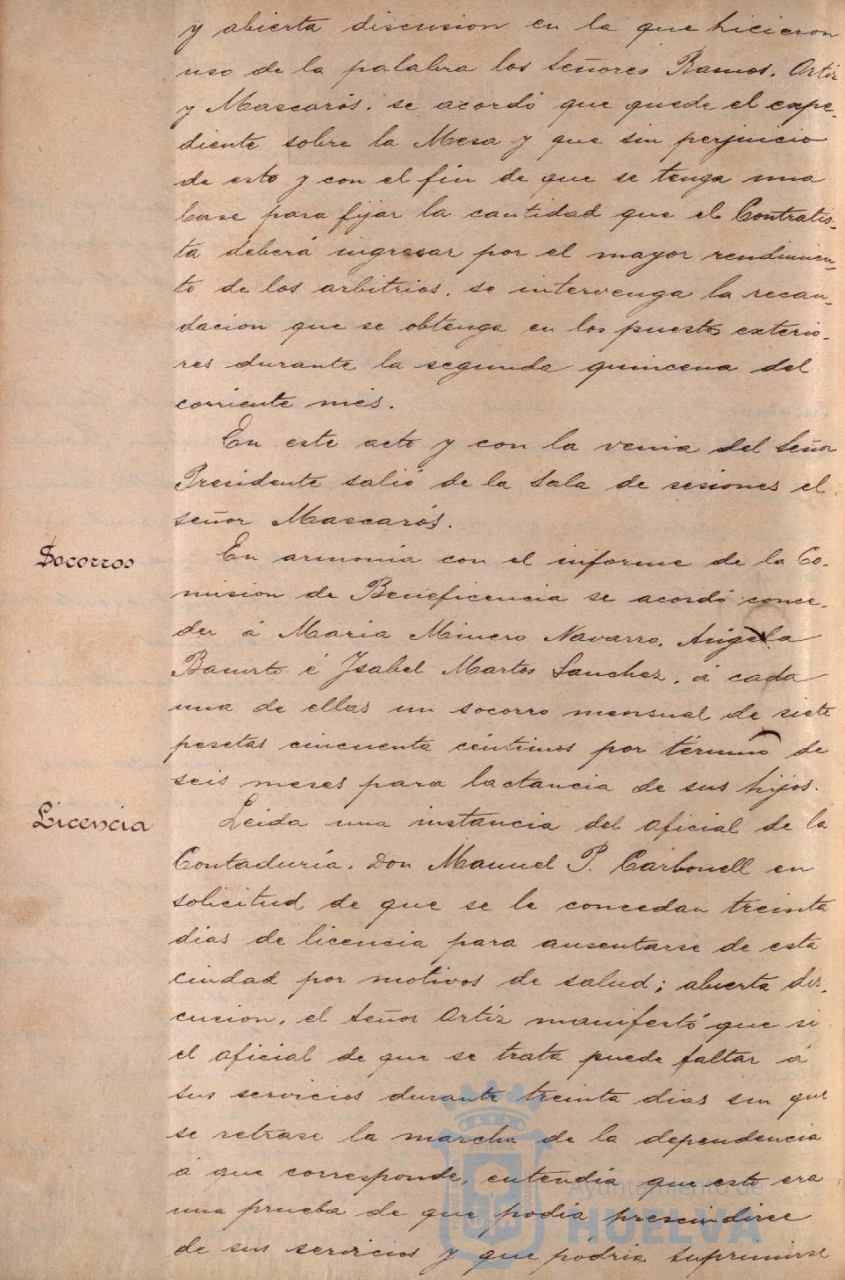 y abierta discusion en la que hicieron
uso de la palabra los Señores Ramos, Ortiz
y Mascarós, se acordó que quede el expe-
diente sobre la Mesa y que sin perjuicio
de esto y con el fin de que se tenga una
base para fijar la cantidad que el Contratis-
ta deberá ingresar por el mayor rendimien-
to de los arbitrios, se intervenga la recau-
dacion que se obtenga en los puestos exterio-
res durante la segunda quincena del
corriente mes.
En este acto y con la venia del Señor
Presidente salió de la Sala de sesiones el
señor Mascarós.
Socorros
En armonía con el informe de la Co-
mision de Beneficencia se acordó conce-
der á Maria Minero Navarro, Angela
Basurto é Ysabel Martos Sanchez, á cada
una de ellas un socorro mensual de siete
pesetas cincuenta céntimos por término de
seis meses para lactancia de sus hijos.
Licencia
Leida una instancia del oficial de la
Contaduría, Don Manuel P. Carbonell en
solicitud de que se le concedan treinta
dias de licencia para ausentarse de esta
ciudad por motivos de salud; abierta dis-
cucion, el Señor Ortiz manifestó que si
el oficial de que se trata puede faltar á
sus servicios durante treinta dias sin que
se retrase la marcha de la dependencia
á que corresponde, entendía que esto era
una prueba de que podía prescindirse
de sus servicios y que podría suprimirse
Ayuntamiento de
HUELVA